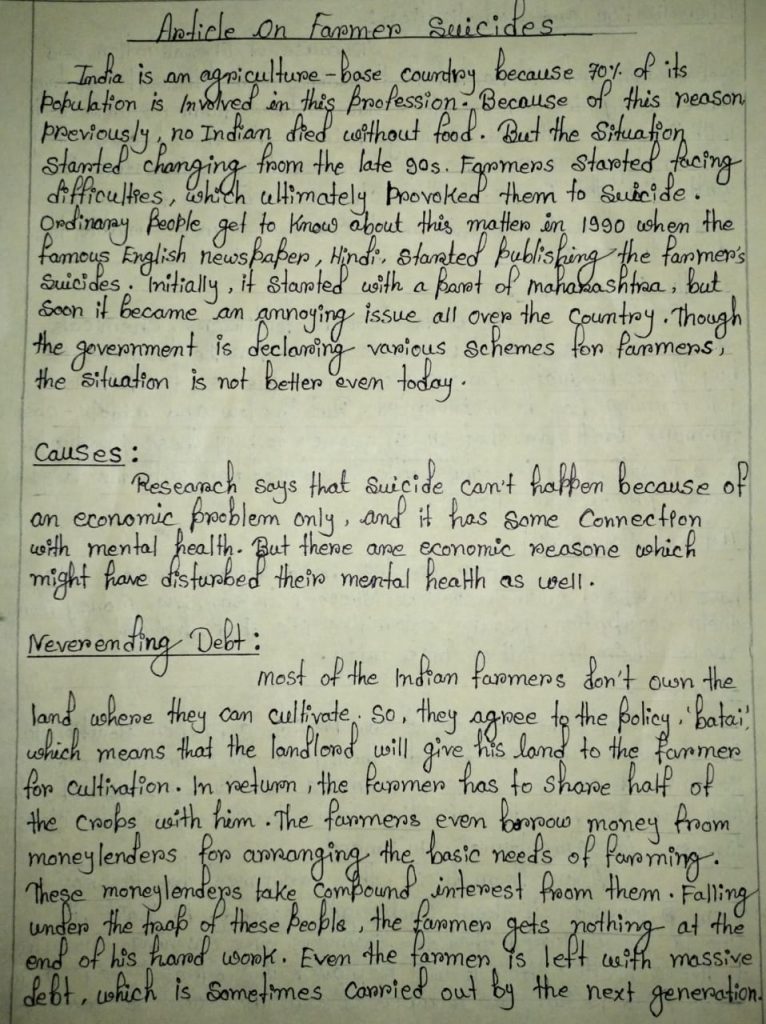 Article On Farmer Suicides
India is an agriculture-base country because 70% of its
Population is Involved in this profession. Because of this reason
previously, no Indian died without food. But the Situation
Started changing from the late 90s. Farmers Started facing
difficulties, which ultimately provoked them to Suicide.
Ordinary People get to Know about this matter in 1990 when the
famous English newspaper, Hindi, Started publishing the farmer's
Suicides. Initially, it Started with a part of maharashtra, but
Soon it became an annoying issue all over the Country. Though
the government is declaring various Schemes for farmers,
the Situation is not better even today.
Causes:
Research says that Suicide can't happen because of
an economic problem only, and it has Some Connection
with mental health. But there are economic reasone which
might have disturbed their mental health as well.
Neverending Debt:
Most of the Indian farmers don't own the
land where they can cultivate. So, they agree to the policy, 'batai',
which means that the landlord will give his land to the farmer
for cultivation. In return, the farmer has to share half of
the Crops with him. The farmers even borrow money from
moneylenders for arranging the basic needs of farming.
These moneylenders take Compound interest from them. Falling
under the trap of these People, the farmer gets nothing at the
end of his hard work. Even the farmer is left with massive
debt, which is Sometimes Carried out by the next generation.